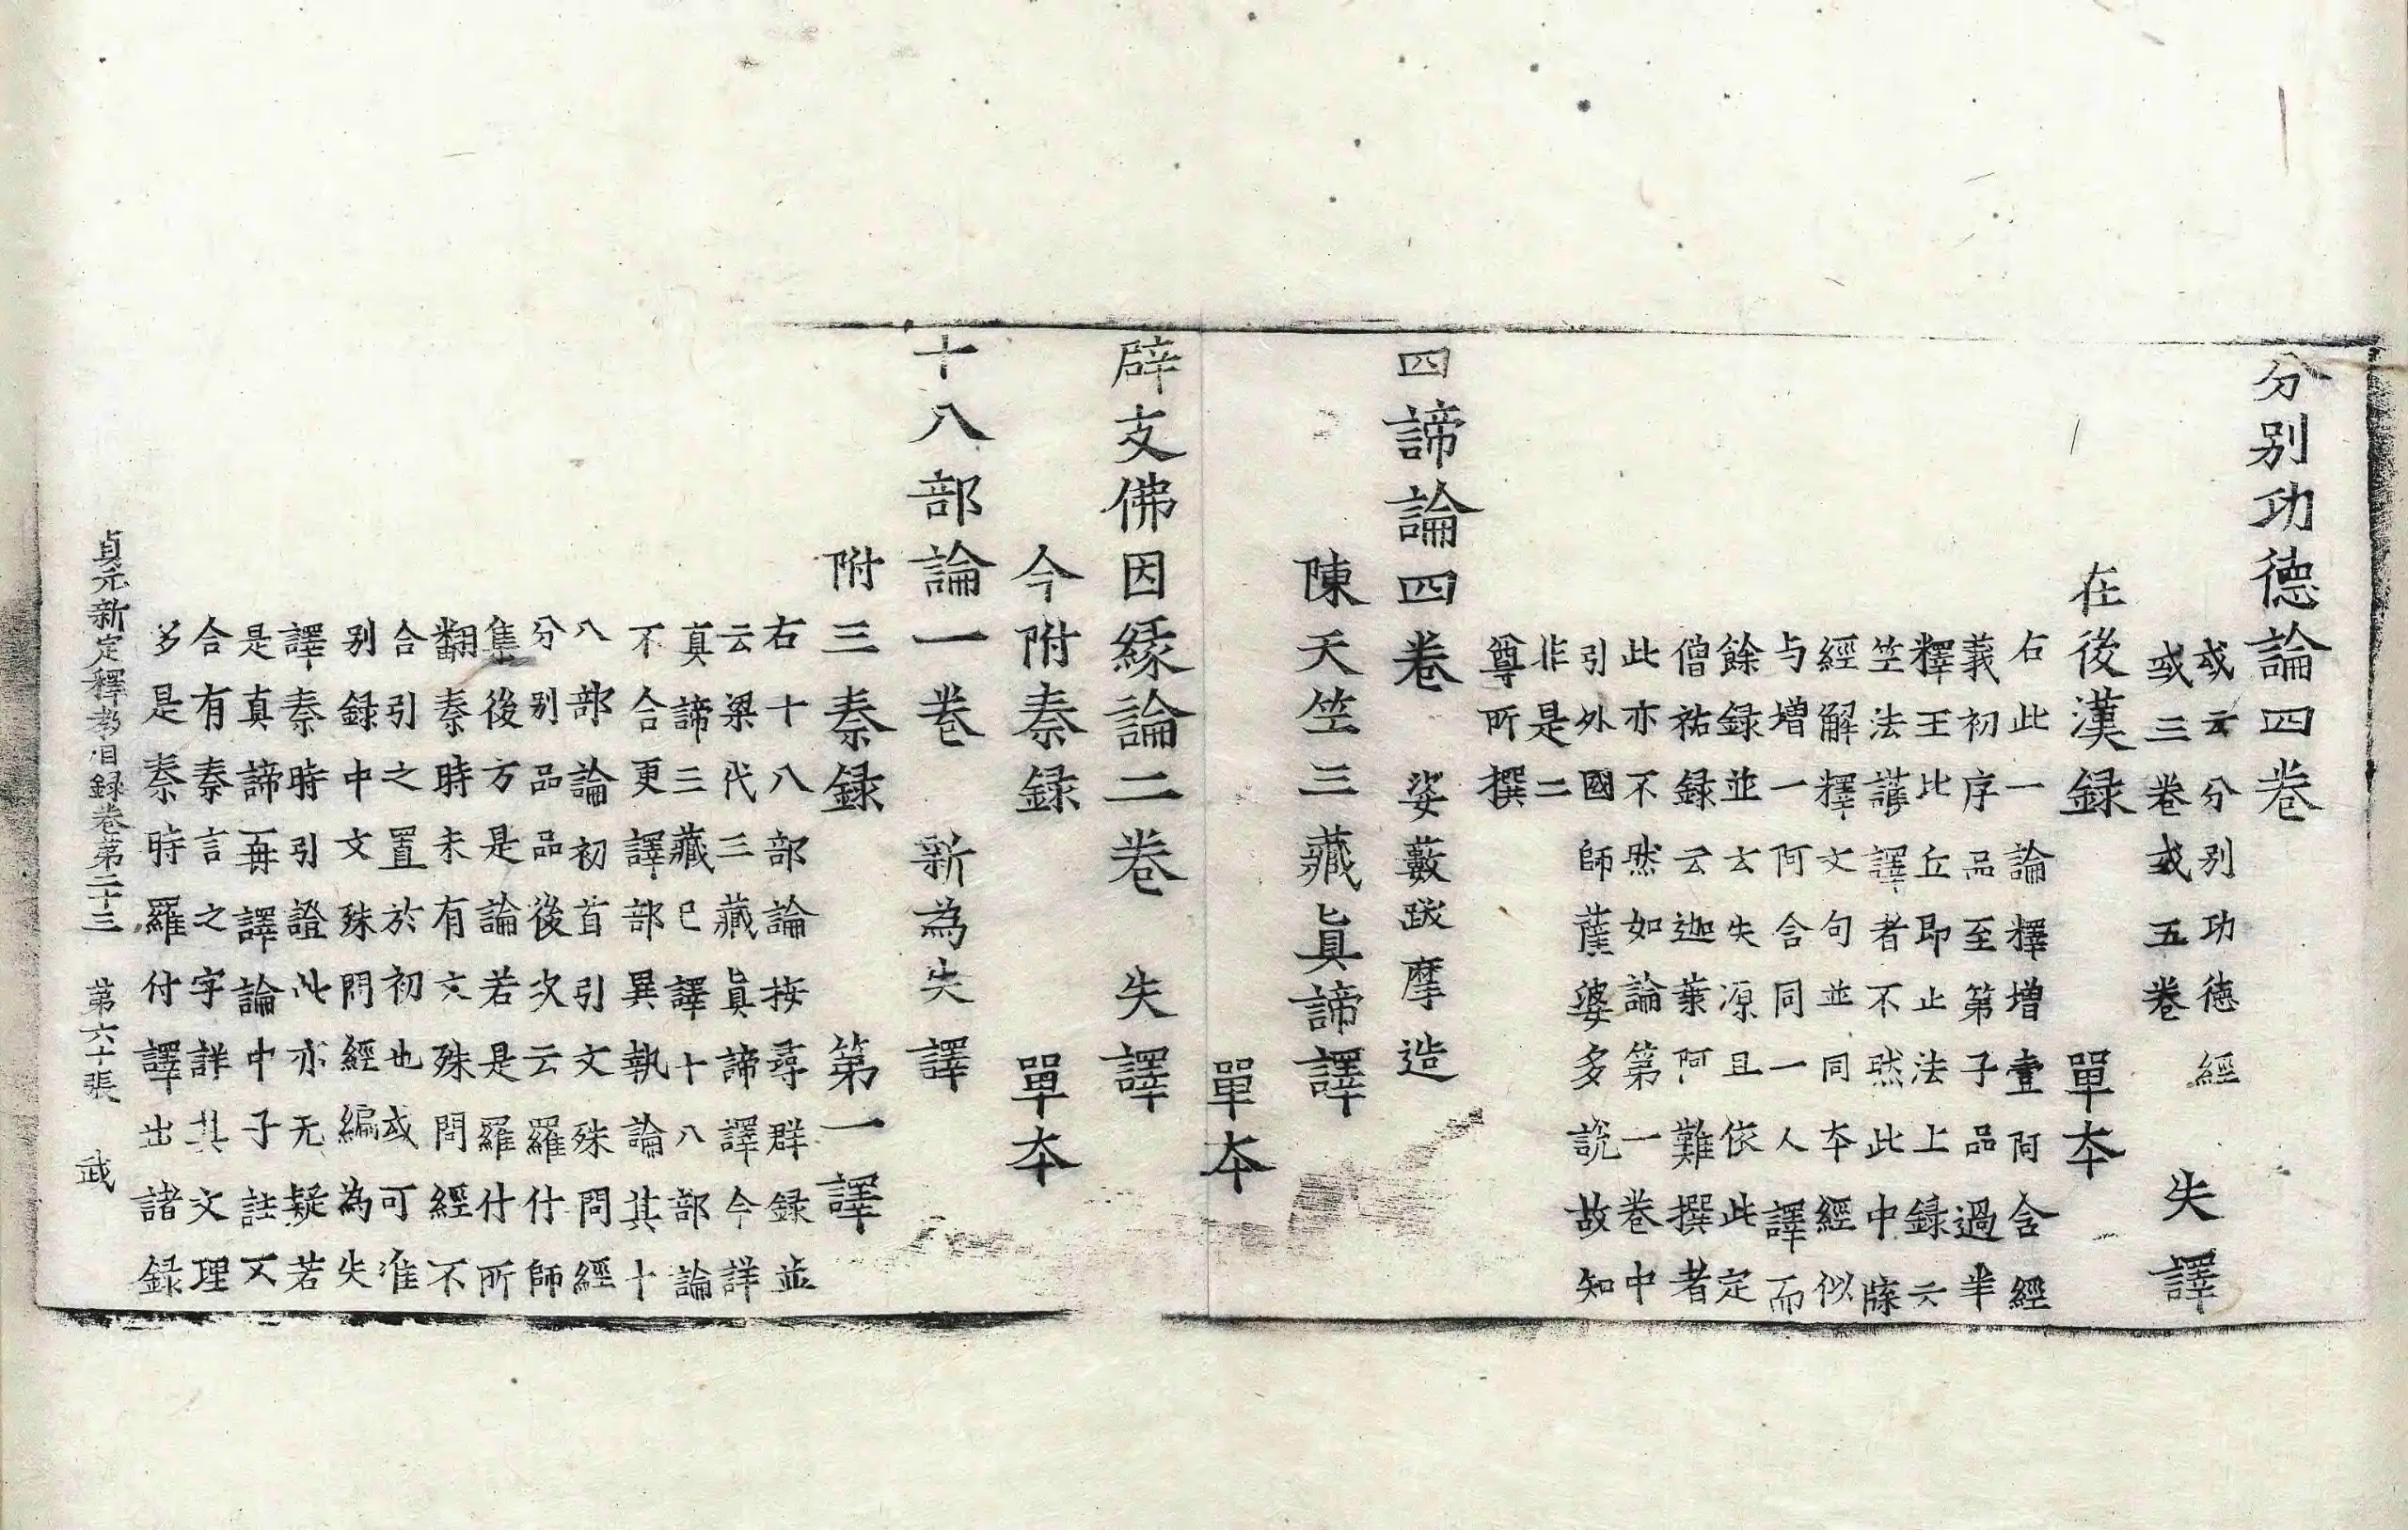 分別功德論四卷
或云分別功德經
或三卷或五卷 失譯
在後漢録 單夲
右此一論釋增壹阿含經
義初序品至苐子品過半
釋王比丘即止法上録云
竺法護譯者不然此中牒
經解釋文句並同夲經似
与增一阿含同一人譯而
餘録並云失源且依此定
僧祐録云迦葉阿難撰者
此亦不然如論第一卷中
引外國師薩婆多説故知
非是二
尊所撰
四諦論四卷 婆藪跋摩造
陳天竺三藏真諦譯
單夲
辟支佛因緣論二卷 失譯
今附秦録 單夲
十八部論一卷 新為失譯
附三秦録 第一譯
右十八部論按尋群録並
云梁代三藏真諦譯今詳
真諦三藏已譯十八部論
不合更譯部異執論其十
八部論初首引文殊問經
分別品品後次云羅什師
集後方是論若是羅什所
翻秦時未有文殊問經不
合引之置於初也或可准
別録中文殊問經編為失
譯秦時引證此亦无疑若
是真諦再譯論中子註又
合有秦言之字詳其文理
多是秦時羅什譯出諸録
貞元新定釋教目録卷第二十三 第六十張 武